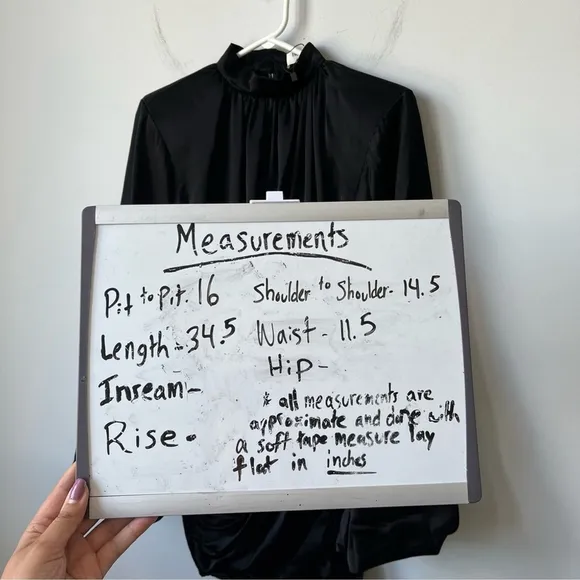 Measurements
Pit to Pit. 16 Shoulder to Shoulder- 14.5
Length-34.5 Waist- 11.5
Inseam- Hip-
Rise-
* all measurements are
approximate and done with
a soft tape measure lay
flat in inches